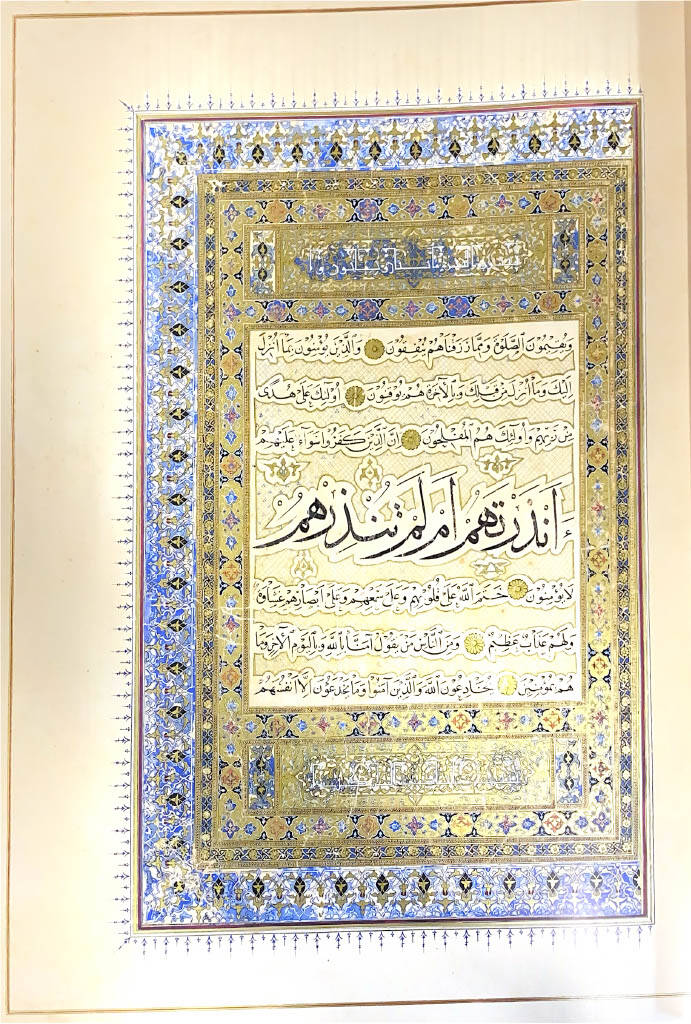 وَيُقِيمُونَ الصَّلٰوةَ وَمِمَّا رَزَقْنَاهُمْ يُنْفِقُونَ وَالَّذِينَ يُؤْمِنُونَ بِمَا اُنْزِلَ
اِلَيْكَ وَمَا اُنْزِلَ مِنْ قَبْلِكَ وَبِالْآخِرَةِ هُمْ يُوقِنُونَ اُولٰئِكَ عَلٰى هُدًى
مِنْ رَبِّهِمْ وَاُولٰئِكَ هُمُ الْمُفْلِحُونَ اِنَّ الَّذِينَ كَفَرُوا سَوَاءٌ عَلَيْهِمْ
ءَاَنْذَرْتَهُمْ اَمْ لَمْ تُنْذِرْهُمْ
لَا يُؤْمِنُونَ خَتَمَ اللّٰهُ عَلٰى قُلُوبِهِمْ وَعَلٰى سَمْعِهِمْ وَعَلٰى اَبْصَارِهِمْ غِشَاوَةٌ
وَلَهُمْ عَذَابٌ عَظِيمٌ وَمِنَ النَّاسِ مَنْ يَقُولُ آمَنَّا بِاللّٰهِ وَبِالْيَوْمِ الْآخِرِ وَمَا
هُمْ بِمُؤْمِنِينَ يُخَادِعُونَ اللّٰهَ وَالَّذِينَ آمَنُوا وَمَا يَخْدَعُونَ اِلَّا اَنْفُسَهُمْ